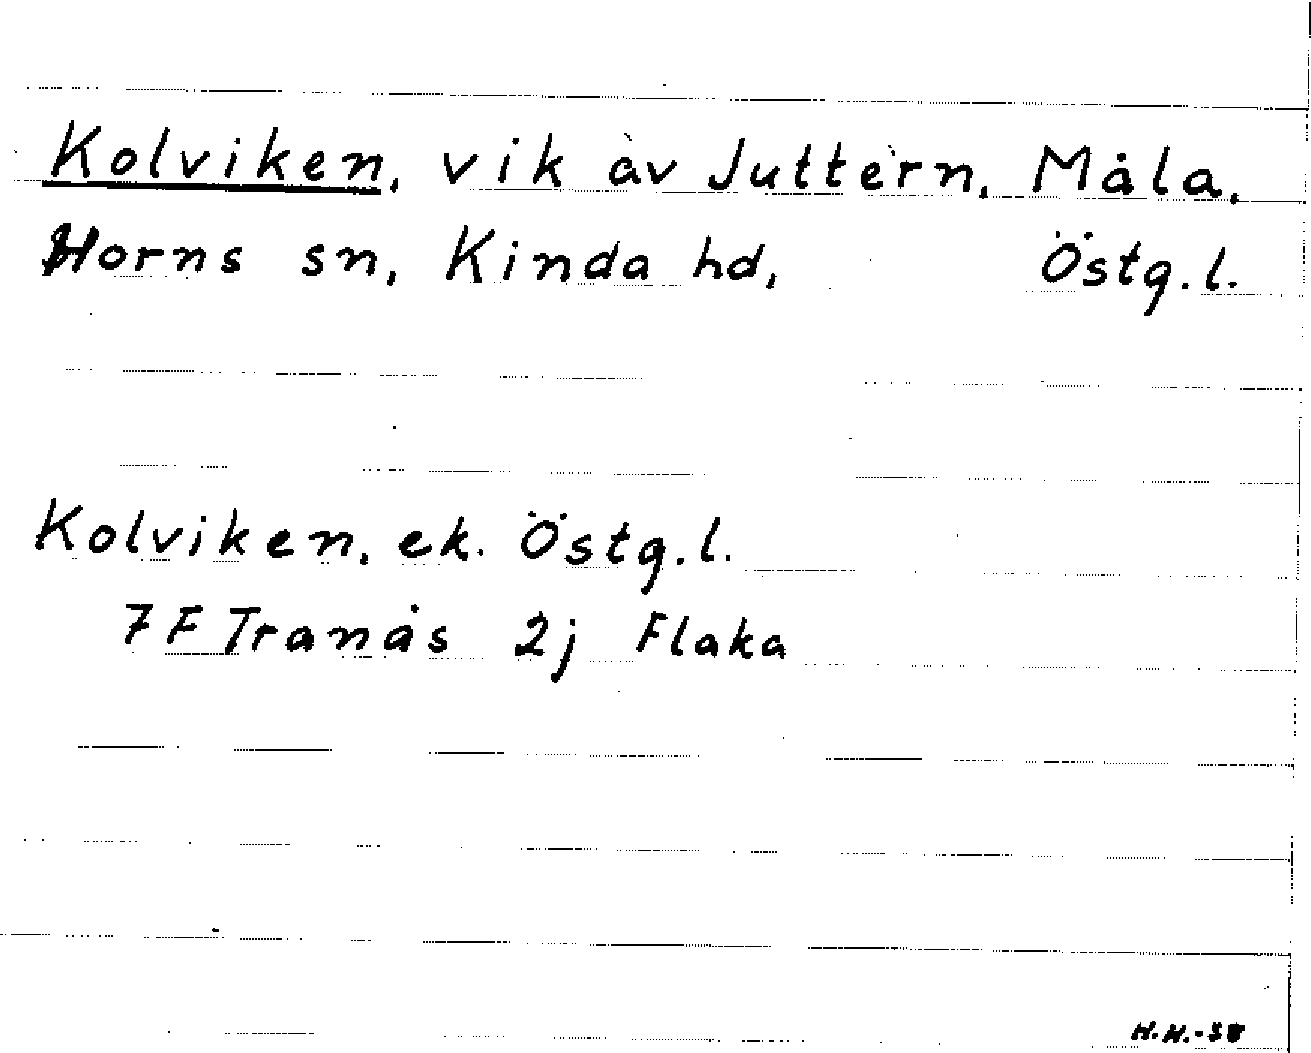 Kolviken, vik av Juttern, Måla,
Horns sn, Kinda hd, Östg.l.
Kolviken, ek. Östg.l.
7F Tranås 2j Flaka